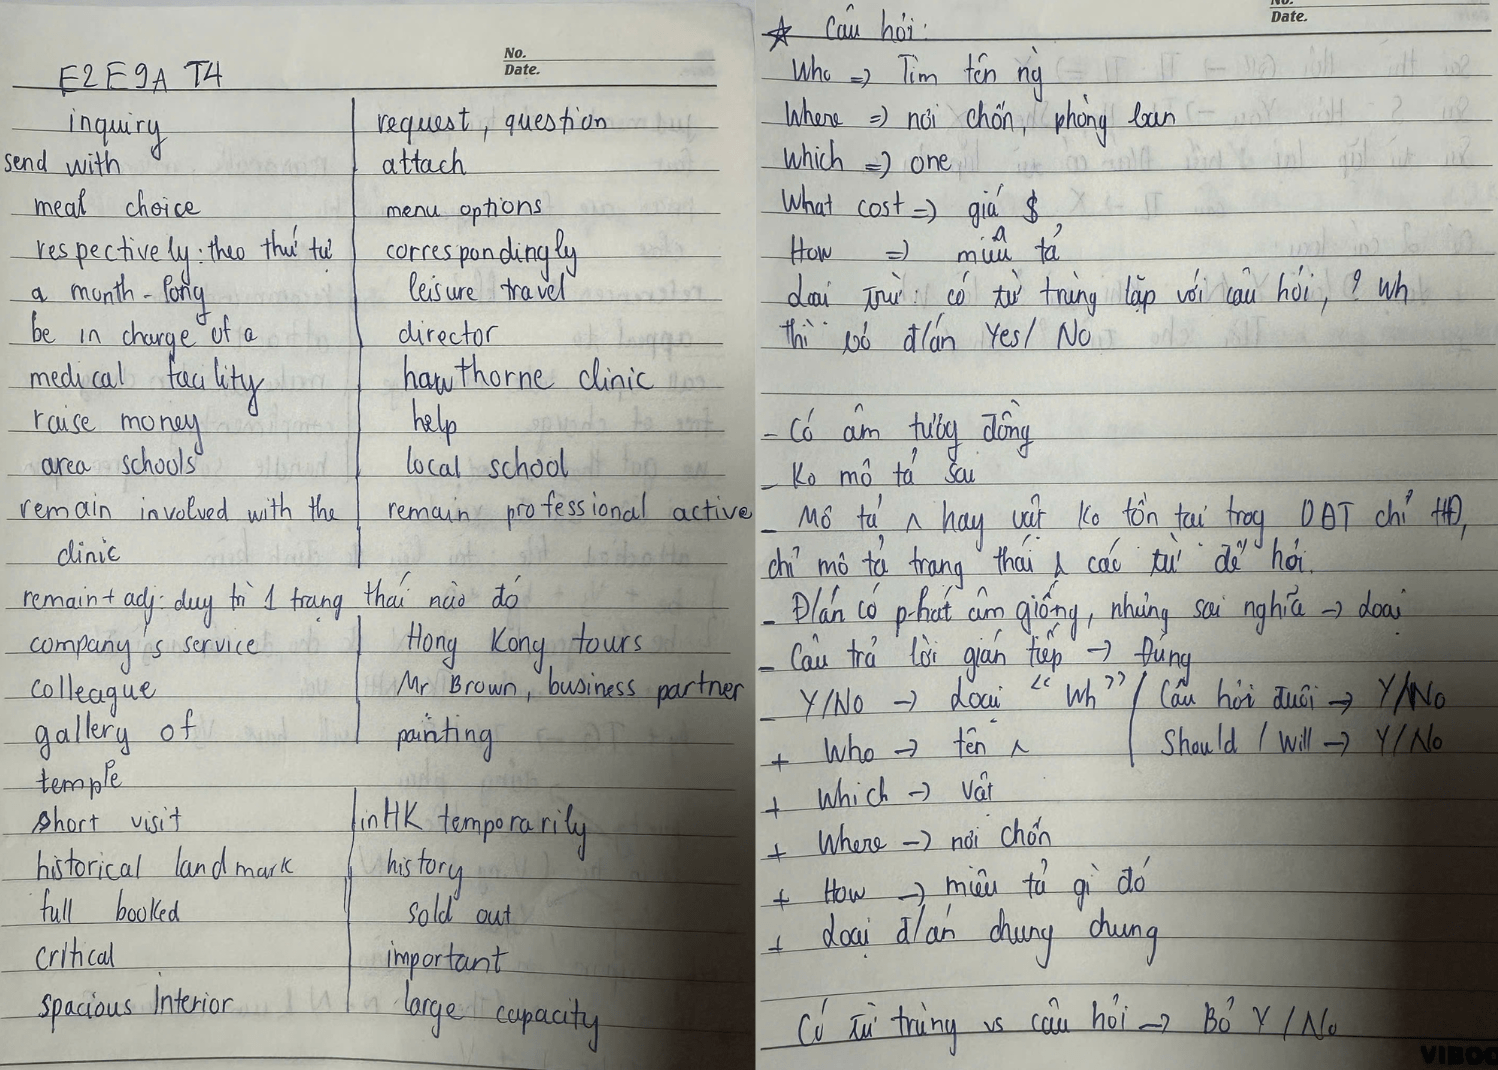 No.
Date.
E2 E9A T4
inquiry | request, question
send with | attach
meal choice | menu options
respectively: theo thứ tự | correspondingly
a month-long | leisure travel
be in charge of a | director
medical facility | hawthorne clinic
raise money | help
area schools | local school
remain involved with the | remain professional active
clinic
remain + adj: duy trì 1 trạng thái nào đó
company's service | Hong Kong tours
colleague | Mr Brown, business partner
gallery of | painting
temple
short visit | in HK temporarily
historical landmark | history
full booked | sold out
critical | important
spacious Interior | large capacity
No.
Date.
☆ Câu hỏi:
Who => Tìm tên ng
Where => nơi chốn, phòng ban
Which => one
What cost => giá $
How => miêu tả
Loại trừ: có từ trùng lặp với câu hỏi, ? Wh
thì bỏ đ/án Yes/ No
- Có âm tương đồng
- Ko mô tả sai
- Mô tả ^ hay vật ko tồn tại trog DĐT chỉ HĐ,
chỉ mô tả trạng thái & các từ để hỏi.
- Đ/án có phát âm giống, nhưng sai nghĩa -> loại
- Câu trả lời gián tiếp -> Đúng
- Y/No -> Loại "Wh" / Câu hỏi đuôi -> Y/No
+ Who -> tên ^ | Should / Will -> Y/No
+ Which -> vật
+ Where -> nơi chốn
+ How -> miêu tả gì đó
+ Loại đ/án chung chung
Có từ trùng vs câu hỏi -> Bỏ Y/No